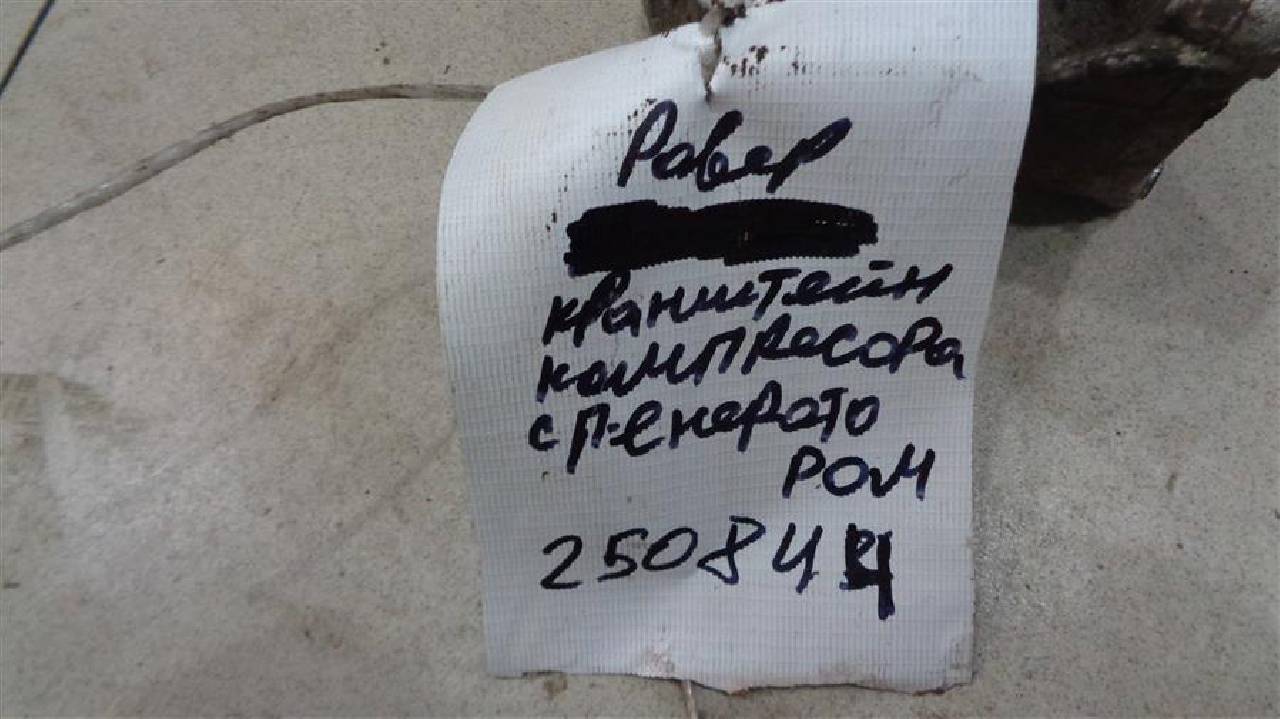 Ровер
кранштейн
компресора
с генерато
ром
250844